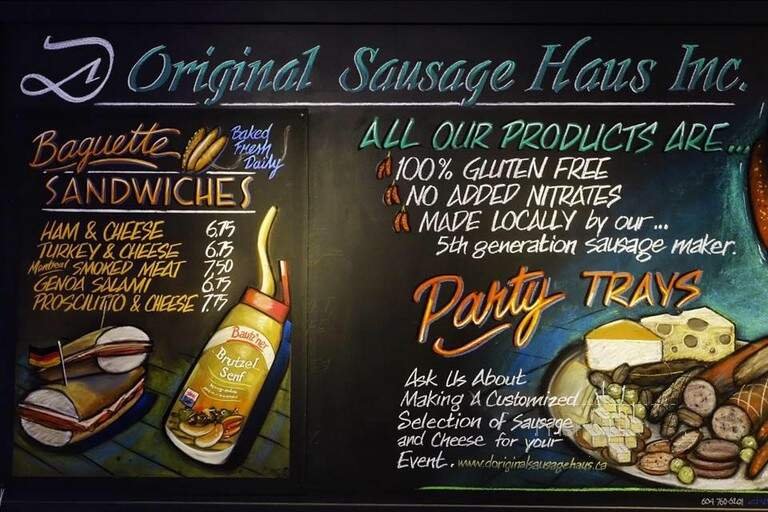 D Original Sausage Haus Inc.
Baguette
Baked
Fresh
Daily
SANDWICHES
HAM & CHEESE 6.75
TURKEY & CHEESE 6.75
Montreal SMOKED MEAT 7.50
GENOA SALAMI 6.75
PROSCIUTTO & CHEESE 7.75
Bautz'ner
Brutzel
Senf
ALL OUR PRODUCTS ARE...
100% GLUTEN FREE
NO ADDED NITRATES
MADE LOCALLY by our...
5th generation sausage maker.
Party TRAYS
Ask Us About
Making A Customized
Selection of Sausage
and Cheese for your
Event. www.doriginalsausagehaus.ca